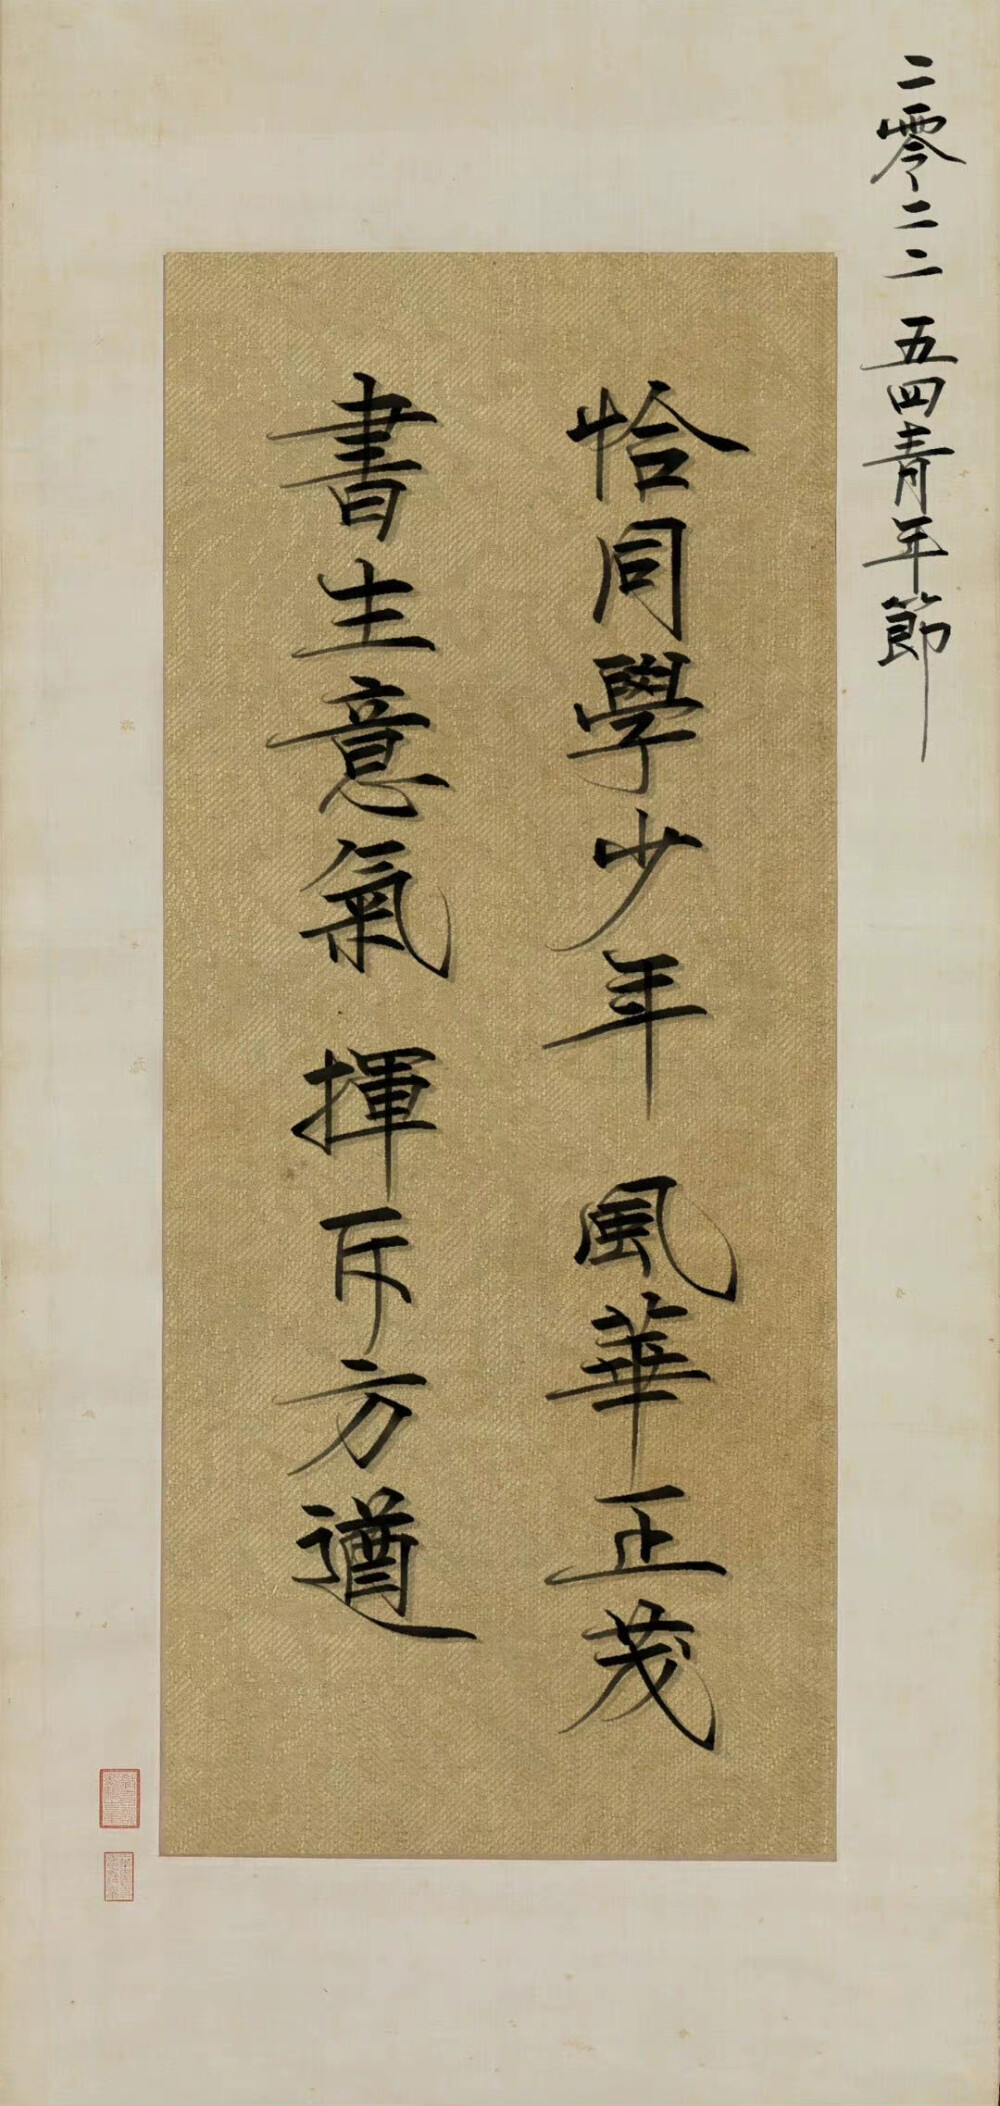 二零二二 五四青年節
恰同學少年 風華正茂
書生意氣 揮斥方遒